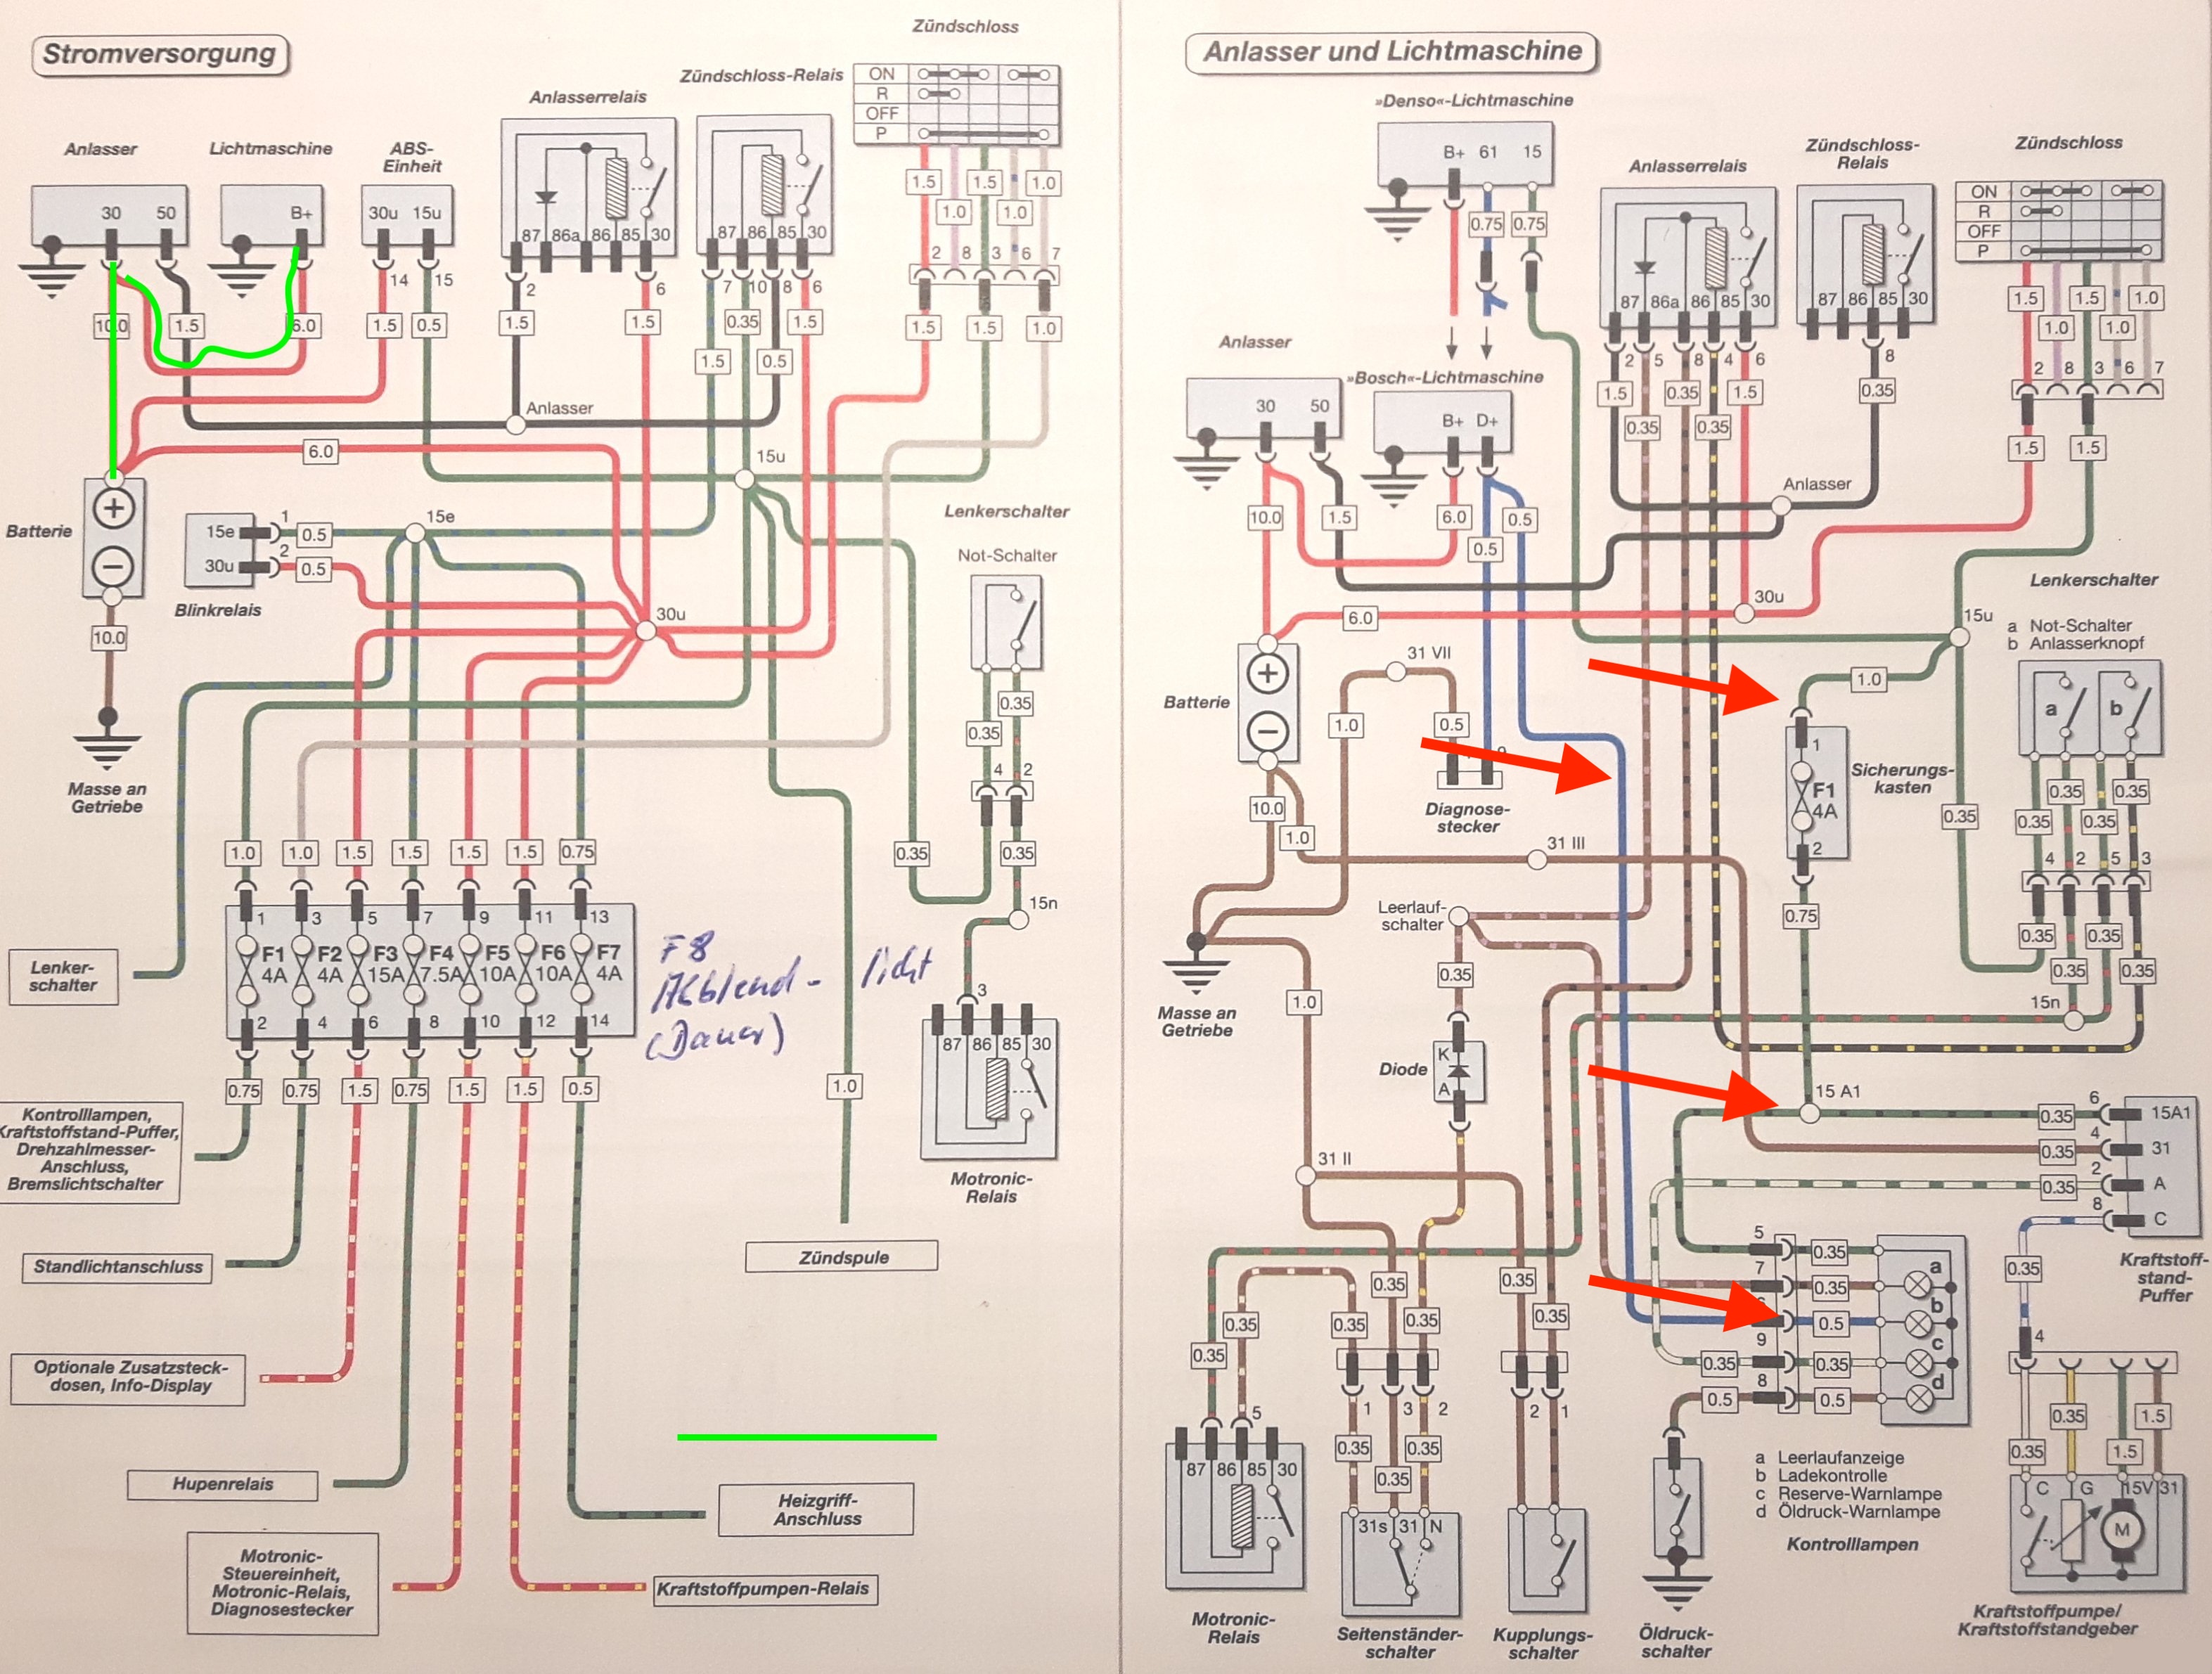 Stromversorgung
Zündschloss
Zündschloss-Relais
ON
R
OFF
P
Anlasserrelais
Anlasser
Lichtmaschine
ABS-
Einheit
30 50
B+
30u 15u
87 86a 86 85 30
87 86 85 30
1.5 1.5 1.0
1.0 1.0
2 8 3 6 7
14 15
2 6
7 10 8 6
10.0 1.5 6.0 1.5 0.5
1.5 1.5
0.35 1.5
1.5 0.5
1.5 1.5 1.0
Anlasser
6.0
15u
Batterie
+
−
15e
30u
1
2
0.5
0.5
15e
Blinkrelais
10.0
30u
Lenkerschalter
Not-Schalter
0.35
0.35
4 2
Masse an
Getriebe
1.0 1.0 1.5 1.5 1.5 1.5 0.75
0.35 0.35
15n
1 3 5 7 9 11 13
F1 F2 F3 F4 F5 F6 F7
4A 4A 15A 7.5A 10A 10A 4A
2 4 6 8 10 12 14
F8
Abblend- licht
(Dauer)
Lenker-
schalter
3
87 86 85 30
Motronic-
Relais
0.75 0.75 1.5 0.75 1.5 1.5 0.5
1.0
Kontrolllampen,
Kraftstoffstand-Puffer,
Drehzahlmesser-
Anschluss,
Bremslichtschalter
Standlichtanschluss
Zündspule
Optionale Zusatzsteck-
dosen, Info-Display
Hupenrelais
Heizgriff-
Anschluss
Motronic-
Steuereinheit,
Motronic-Relais,
Diagnosestecker
Kraftstoffpumpen-Relais
Anlasser und Lichtmaschine
»Denso«-Lichtmaschine
B+ 61 15
0.75 0.75
Anlasserrelais
Zündschloss-
Relais
Zündschloss
ON
R
OFF
P
87 86a 86 85 30
87 86 85 30
1.5 1.5 1.0
1.0 1.0
2 8 3 6 7
2 5 8 4 6
8
1.5 0.35 1.5
0.35 0.35
0.35
1.5 1.5
Anlasser
»Bosch«-Lichtmaschine
30 50
B+ D+
10.0 1.5 6.0 0.5
0.5
Anlasser
6.0
30u
15u
Lenkerschalter
a Not-Schalter
b Anlasserknopf
a b
Batterie
+
−
31 VII
1.0
0.5
1.0
Diagnose-
stecker
1
F1
4A
2
Sicherungs-
kasten
0.35 0.35
0.35 0.35
0.35
4 2 5 3
10.0
1.0
31 III
0.75
0.35
0.35 0.35
Leerlauf-
schalter
0.35
Masse an
Getriebe
1.0
15n
Diode
K
A
15 A1
0.35 6 15A1
0.35 4 31
0.35 2 A
8 C
Kraftstoff-
stand-
Puffer
31 II
5 0.35
7 0.35
0.5
9 0.35 0.35
8 0.5 0.5
a
b
c
d
0.35
4
0.35 0.35
0.35
0.35 0.35 0.35
0.35
5
1 3 2
2 1
0.35 0.35
0.35
87 86 85 30
31s 31 N
Motronic-
Relais
Seitenständer-
schalter
Kupplungs-
schalter
Öldruck-
schalter
a Leerlaufanzeige
b Ladekontrolle
c Reserve-Warnlampe
d Öldruck-Warnlampe
Kontrolllampen
0.35 1.5
0.35 1.5
C G 15V 31
M
Kraftstoffpumpe/
Kraftstoffstandgeber